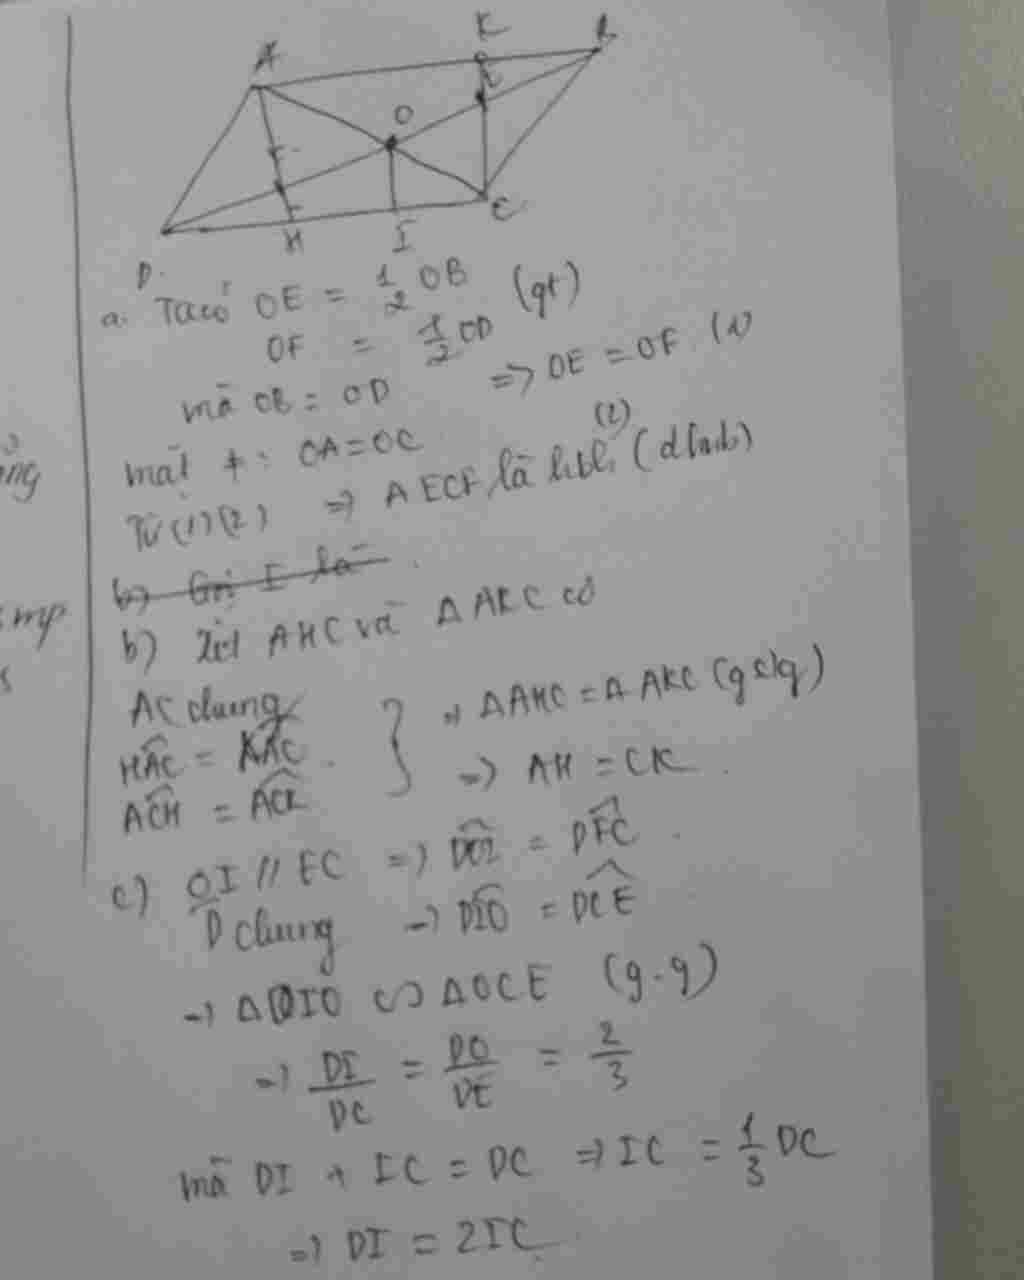 A
K
B
O
E
F
D
H
I
C
a. Ta có OE = 1/2 OB (gt)
OF = 1/2 OD
mà OB = OD => OE = OF (1)
mặt ≠: OA = OC (2)
Từ (1)(2) => AECF là hbh (dhnb)
b) Gọi I là
b) Xét AHC và Δ AKC có
AC chung
HAC = KAC => ΔAHC = Δ AKC (gclg)
ACH = ACK => AH = CK
c) OI // EC => DOI = DEC
D chung => DIO = DCE
=> ΔDIO ∽ ΔDCE (g.g)
=> DI/DC = DO/DE = 2/3
mà DI + IC = DC => IC = 1/3 DC
=> DI = 2IC
ông
mp
s